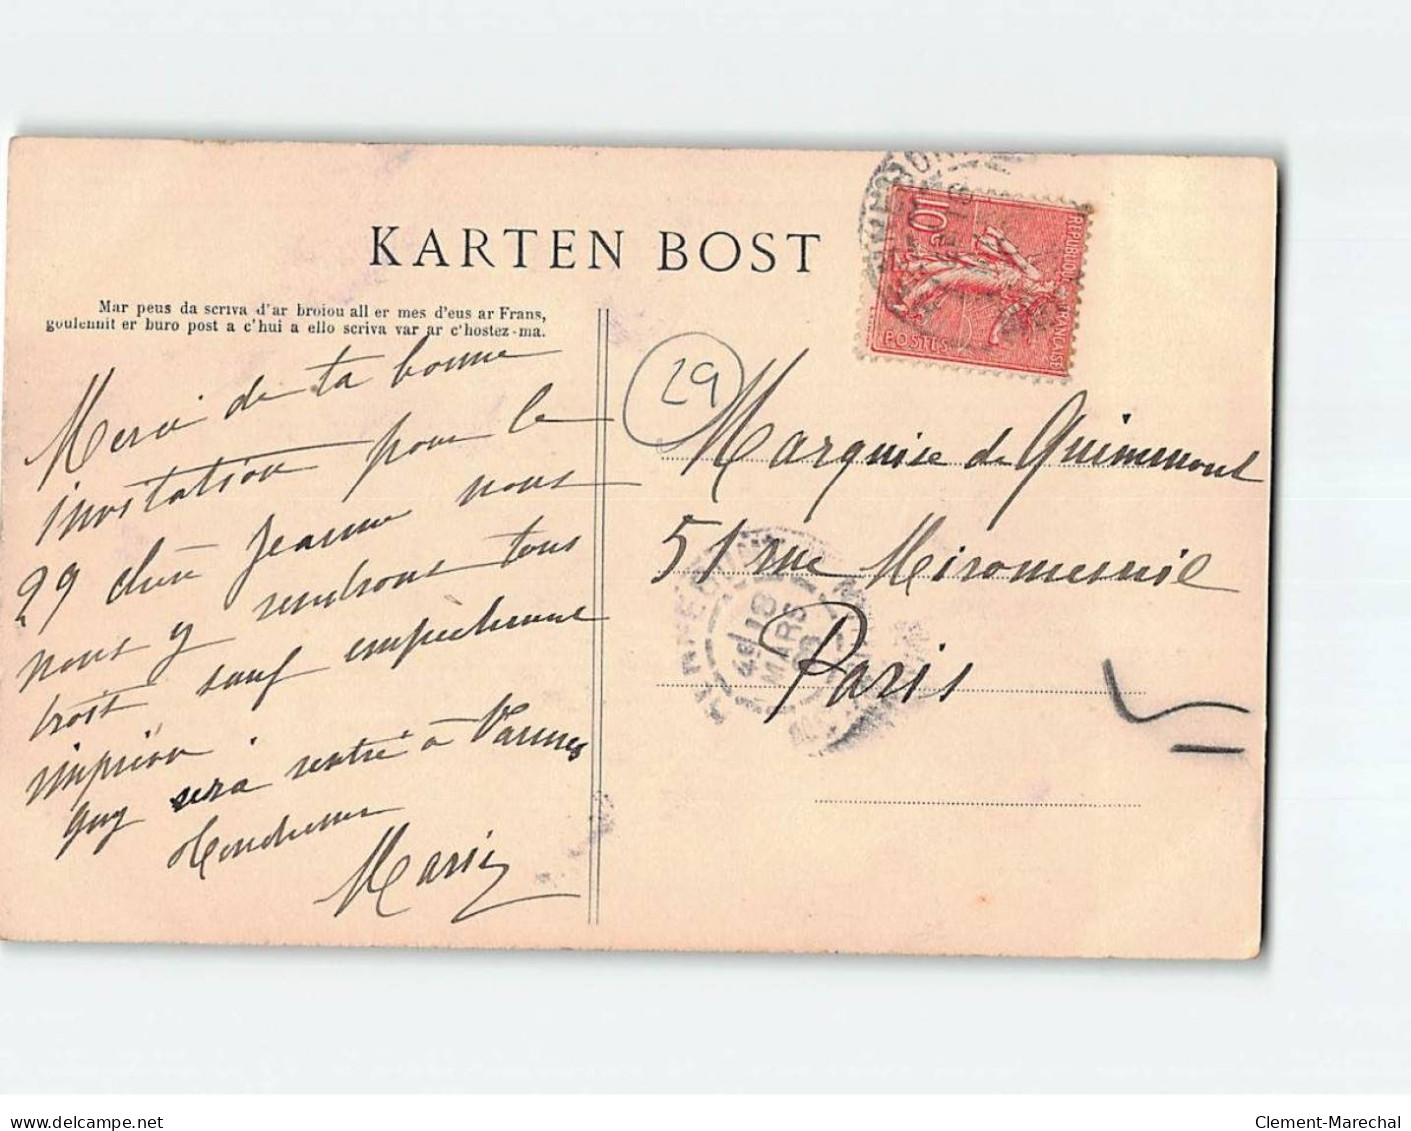 KARTEN BOST
Mar peus da scriva d'ar broiou all er mes d'eus ar Frans,
goulennit er buro post a c'hui a ello scriva var ar c'hostez-ma.
Merci de ta bonne
invitation pour le
29 chère Jeanne nous
nous y rendrons tous
trois sauf empêchement
imprévu.
Guy sera rentré à Vannes
Tendresses
Marie
29
10 c
REPUBLIQUE FRANÇAISE
POSTES
Marquise de Guimmont
51 rue Miromesnil
Paris
18
MARS
www.delcampe.net
Clement-Marechal